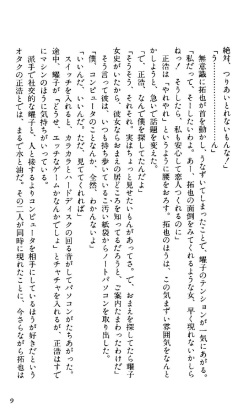 絶対、つりあいとれないもんな！」
「う……………うん」
無意識に拓也が首を動かし、うなずいてしまったことで、曜子のテンションが一気にあがる。
「私だって、そーしたいわよ。あー、拓也の面倒をみてくれるような女、早く現れないかしら
ねっ！ そうしたら、私も安心して恋人つくれるのに」
正浩は「やれやれ」というように腰をおろす。拓也のほうは、この気まずい雰囲気をなんと
かしようと、急いで話題を変えた。
「で、正浩、なんで僕を探してたんだよ」
「そうそう、それそれ、実はちょっと見せたいもんがあってさ。で、おまえを探してたら曜子
女史がいたから、彼女ならおまえの居どころを知ってるだろうと、ご案内たまわったわけだ」
そう言って彼は、いつも持ち歩いているごつい紙袋からノートパソコンを取り出した。
「僕、コンピュータのことなんか、全然、わかんないよ」
「いいんだ、いいんだ。ただ、見ててくれれば」
スイッチを入れると、カラカラとハードディスクの回る音がしてパソコンがたちあがった。
途中、曜子が「どうせゲームかなんかでしょ」とチャチャを入れるが、正浩はすで
にマシンのほうに気持ちがいっている。
派手で社交的な曜子と、人と接するよりコンピュータを相手にしているほうが好きだという
オタクの正浩とでは、まるで水と油だ。その二人が同時に現れたことに、今さらながら拓也は
9